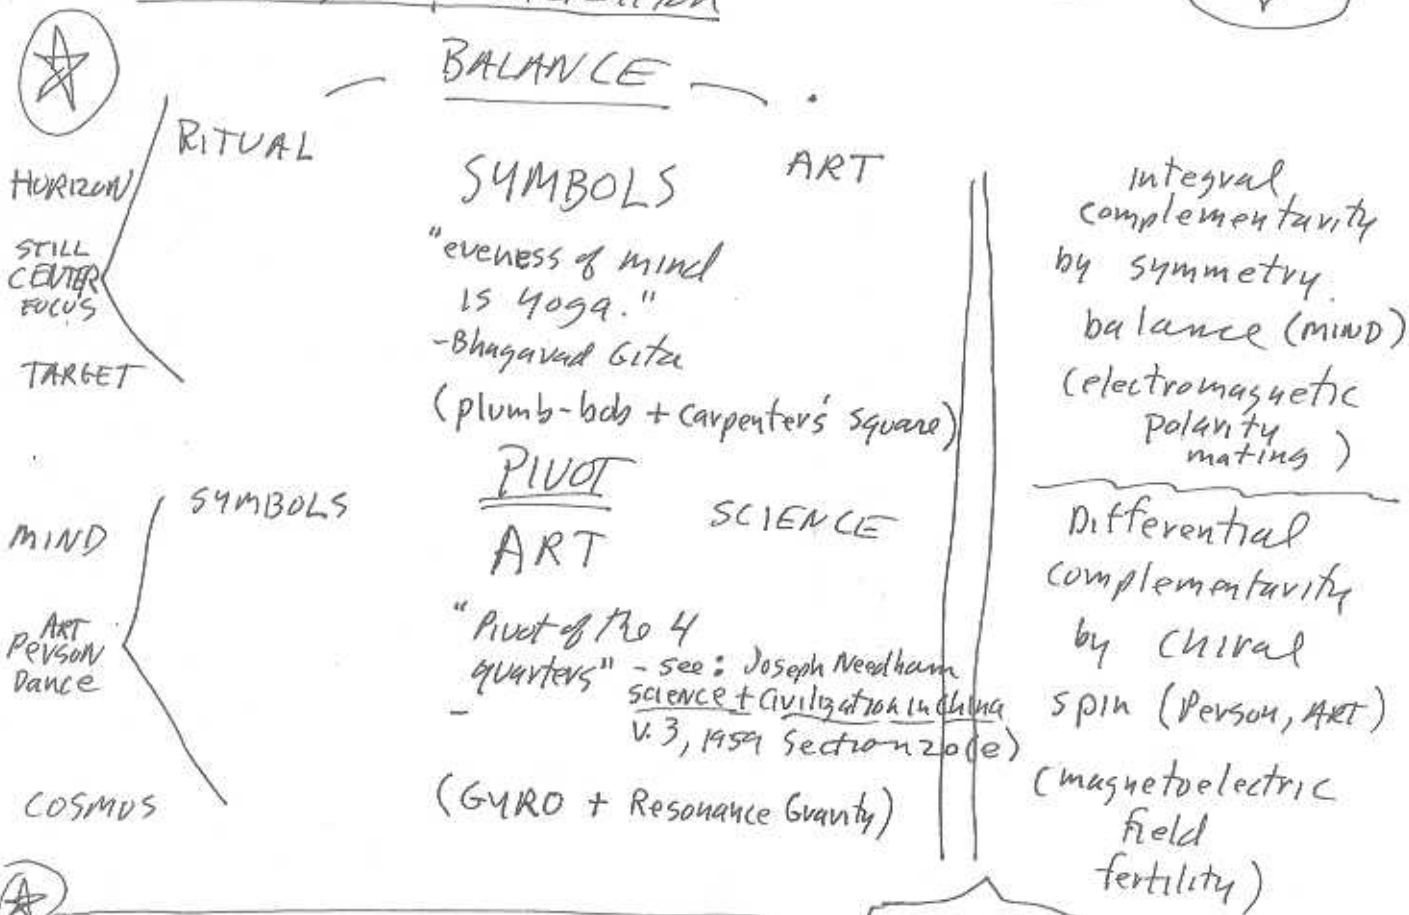 BALANCE
RITUAL
SYMBOLS
ART
HORIZON
STILL
CENTER
FOCUS
TARGET
"eveness of mind
is yoga."
-Bhagavad Gita
(plumb-bob + carpenter's square)
PIVOT
SYMBOLS
ART
SCIENCE
MIND
ART
Person
Dance
COSMOS
"Pivot of the 4
quarters" - see: Joseph Needham
science + Civilization in China
V. 3, 1959 Section 20(e)
(GYRO + Resonance Gravity)
integral
complementarity
by symmetry
balance (MIND)
(electromagnetic
polarity
mating)
Differential
complementarity
by chiral
spin (Person, ART)
(magnetoelectric
field
fertility)